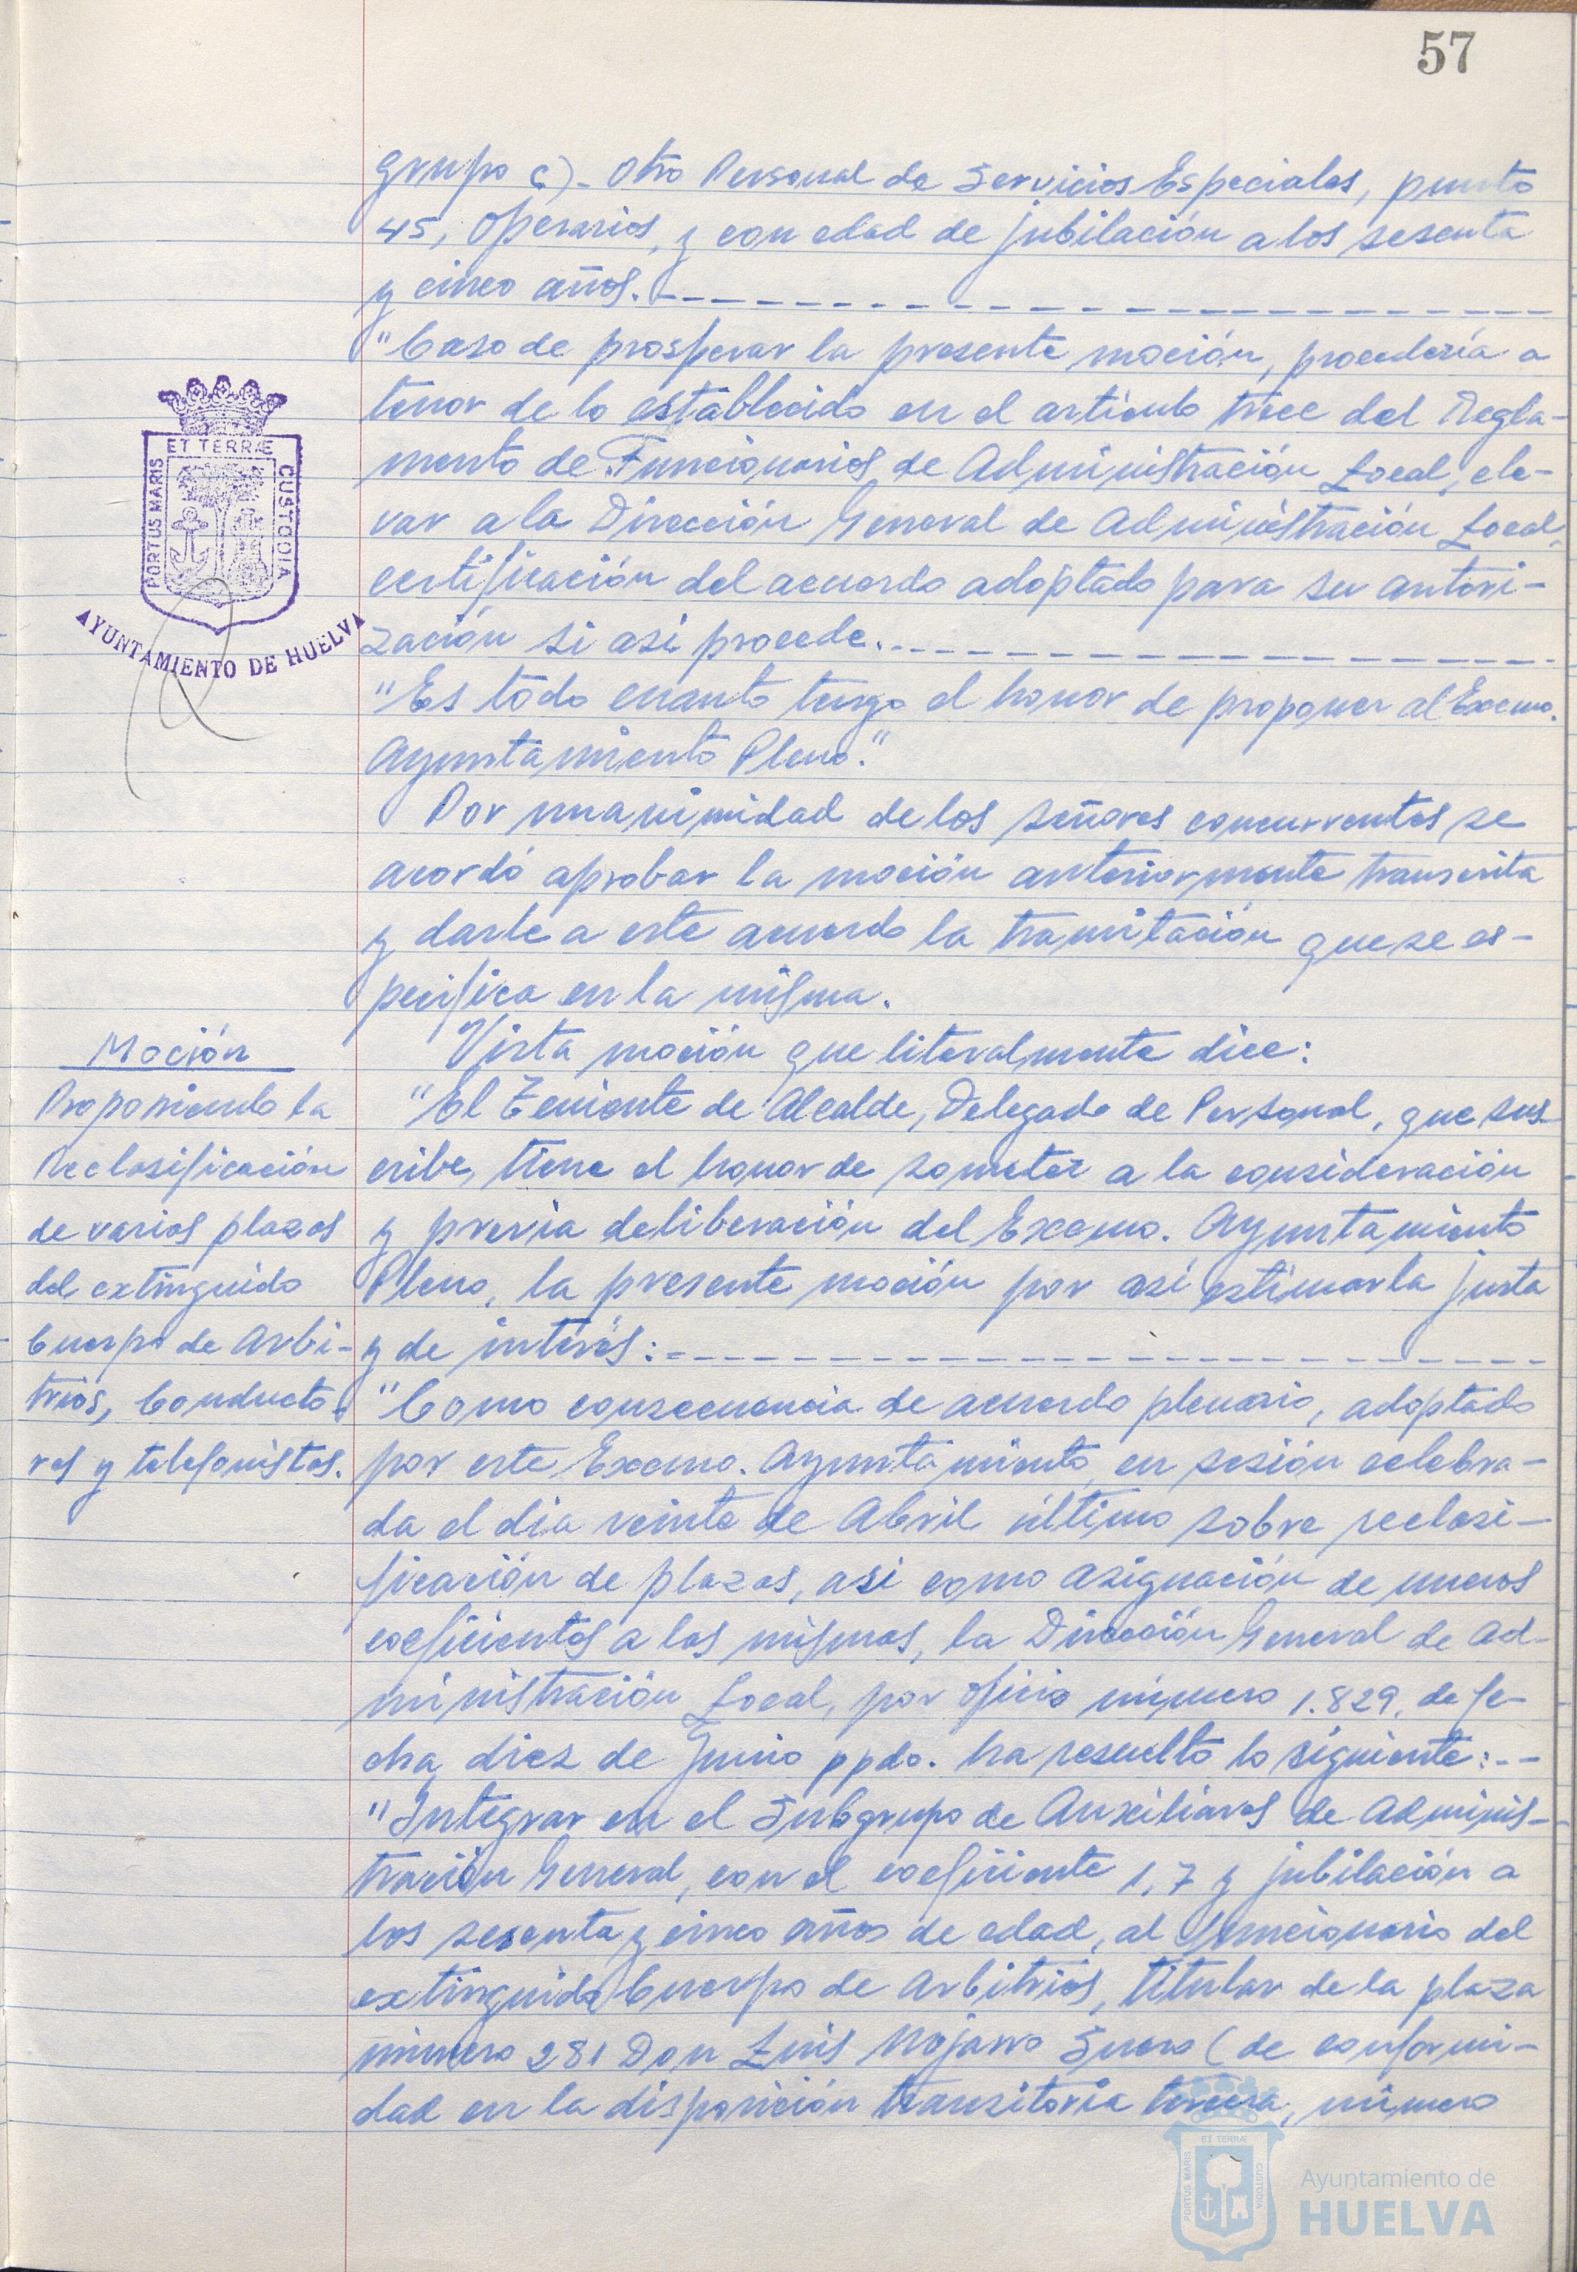 57
grupo c).- Otro Personal de Servicios Especiales, punto
45, Operarios, y con edad de jubilación a los sesenta
y cinco años.
"Caso de prosperar la presente moción, procedería a
tenor de lo establecido en el artículo trece del Regla-
mento de Funcionarios de Administración Local, ele-
var a la Dirección General de Administración Local,
certificación del acuerdo adoptado para su autori-
zación si asi procede.
"Es todo cuanto tengo el honor de proponer al Excmo.
Ayuntamiento Pleno."
Por unanimidad de los señores concurrentes se
acordó aprobar la moción anteriormente transcrita
y darle a este acuerdo la tramitación que se es-
pecifica en la misma.
Moción
Proponiendo la
Reclasificación
de varias plazas
del extinguido
Cuerpo de Arbi-
trios, Conducto-
res y telefonistas.
Vista moción que literalmente dice:
"El Teniente de Alcalde, Delegado de Personal, que sus-
cribe, tiene el honor de someter a la consideración
y previa deliberación del Excmo. Ayuntamiento
Pleno, la presente moción por así estimarla justa
y de interés:
"Como consecuencia de acuerdo plenario, adoptado
por este Excmo. Ayuntamiento, en sesión celebra-
da el dia veinte de Abril último sobre reclasi-
ficación de plazas, asi como asignación de nuevos
coeficientes a las mismas, la Dirección General de Ad-
ministración Local, por oficio número 1.829, de fe-
cha diez de Junio ppdo. ha resuelto lo siguiente:
"Integrar en el Subgrupo de Auxiliares de Adminis-
tración General, con el coeficiente 1,7 y jubilación a
los sesenta y cinco años de edad, al funcionario del
extinguido Cuerpo de Arbitrios, titular de la plaza
número 281 Don Luis Mojarro Suero (de conformi-
dad en la disposición transitoria tercera, número
ET TERRÆ
PORTUS MARIS
CUSTODIA
AYUNTAMIENTO DE HUELVA
ET TERRÆ
PORTUS MARIS
CUSTODIA
Ayuntamiento de
HUELVA